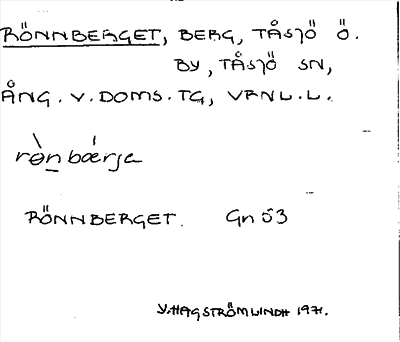 RÖNNBERGET, BERG, TÅSJÖ Ö.
BY, TÅSJÖ SN,
ÅNG. V. DOMS. TG, VRNL.L.
rònbǽrje
RÖNNBERGET. Gn 53
V. HAGSTRÖM LINDH 1971.